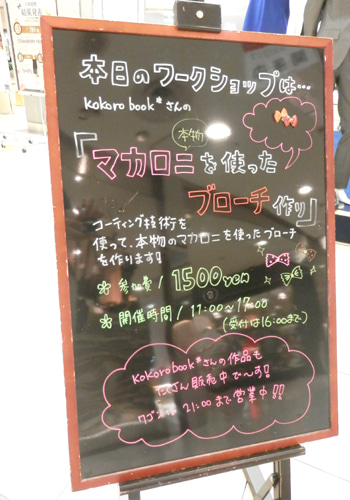 本日のワークショップは…
kokoro book*さんの
本物
「マカロニを使った
ブローチ作り」
コーティング技術を
使って、本物のマカロニを使ったブローチ
を作ります!
参加費/1500yen
開催時間/11:00~17:00
(受付は16:00まで)
kokoro book*さんの作品も
たくさん販売中で~す!
ワゴンは 21:00まで営業中!!